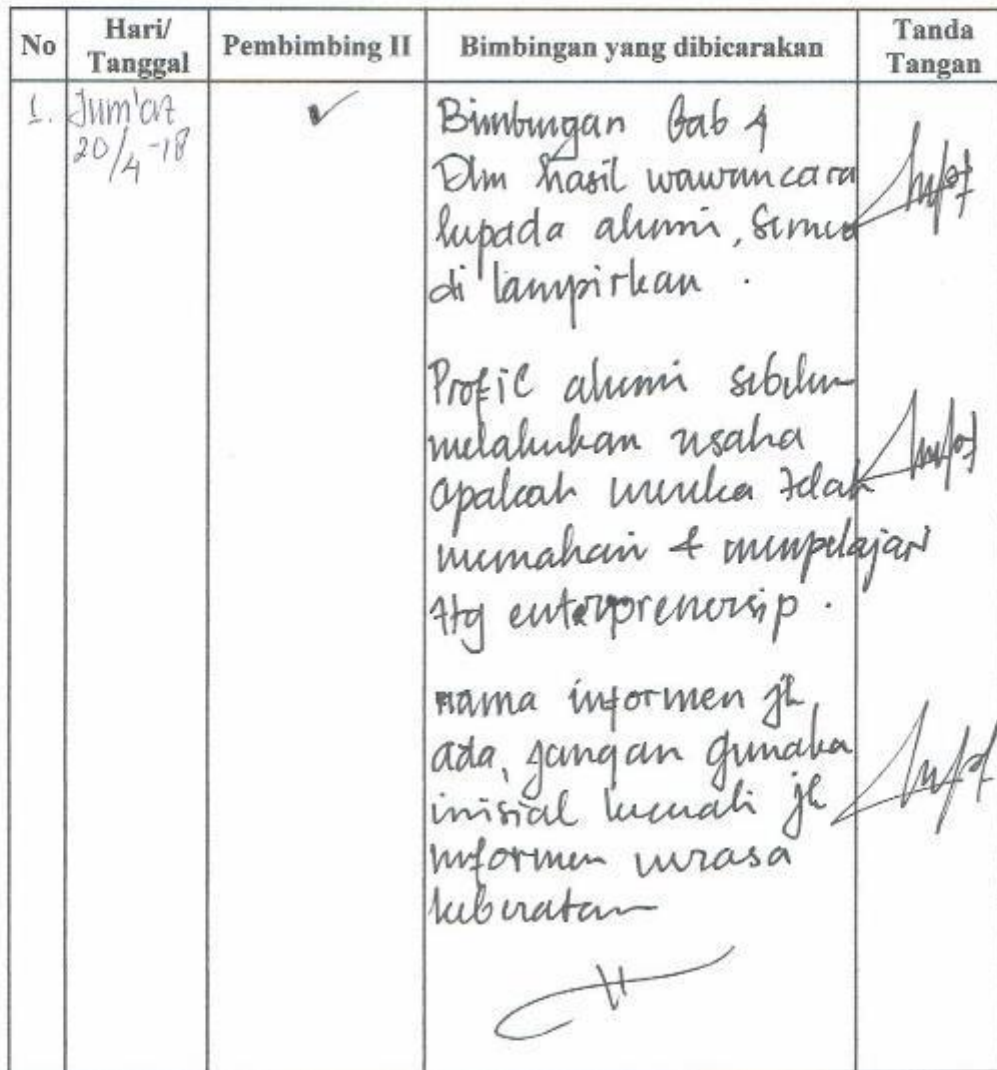 No Hari/ Tanggal Pembimbing II Bimbingan yang dibicarakan Tanda Tangan
1. Jum'at ✓ Bimbingan Bab 4
20/4-18 Dlm hasil wawancara
kepada alumni, semua
di lampirkan.
Profil alumni sebelum
melakukan usaha
apakah mereka telah
memahami & mempelajari
ttg enterprenersip.
nama informen jk
ada, jangan gunakan
inisial kecuali jk
informen merasa
keberatan